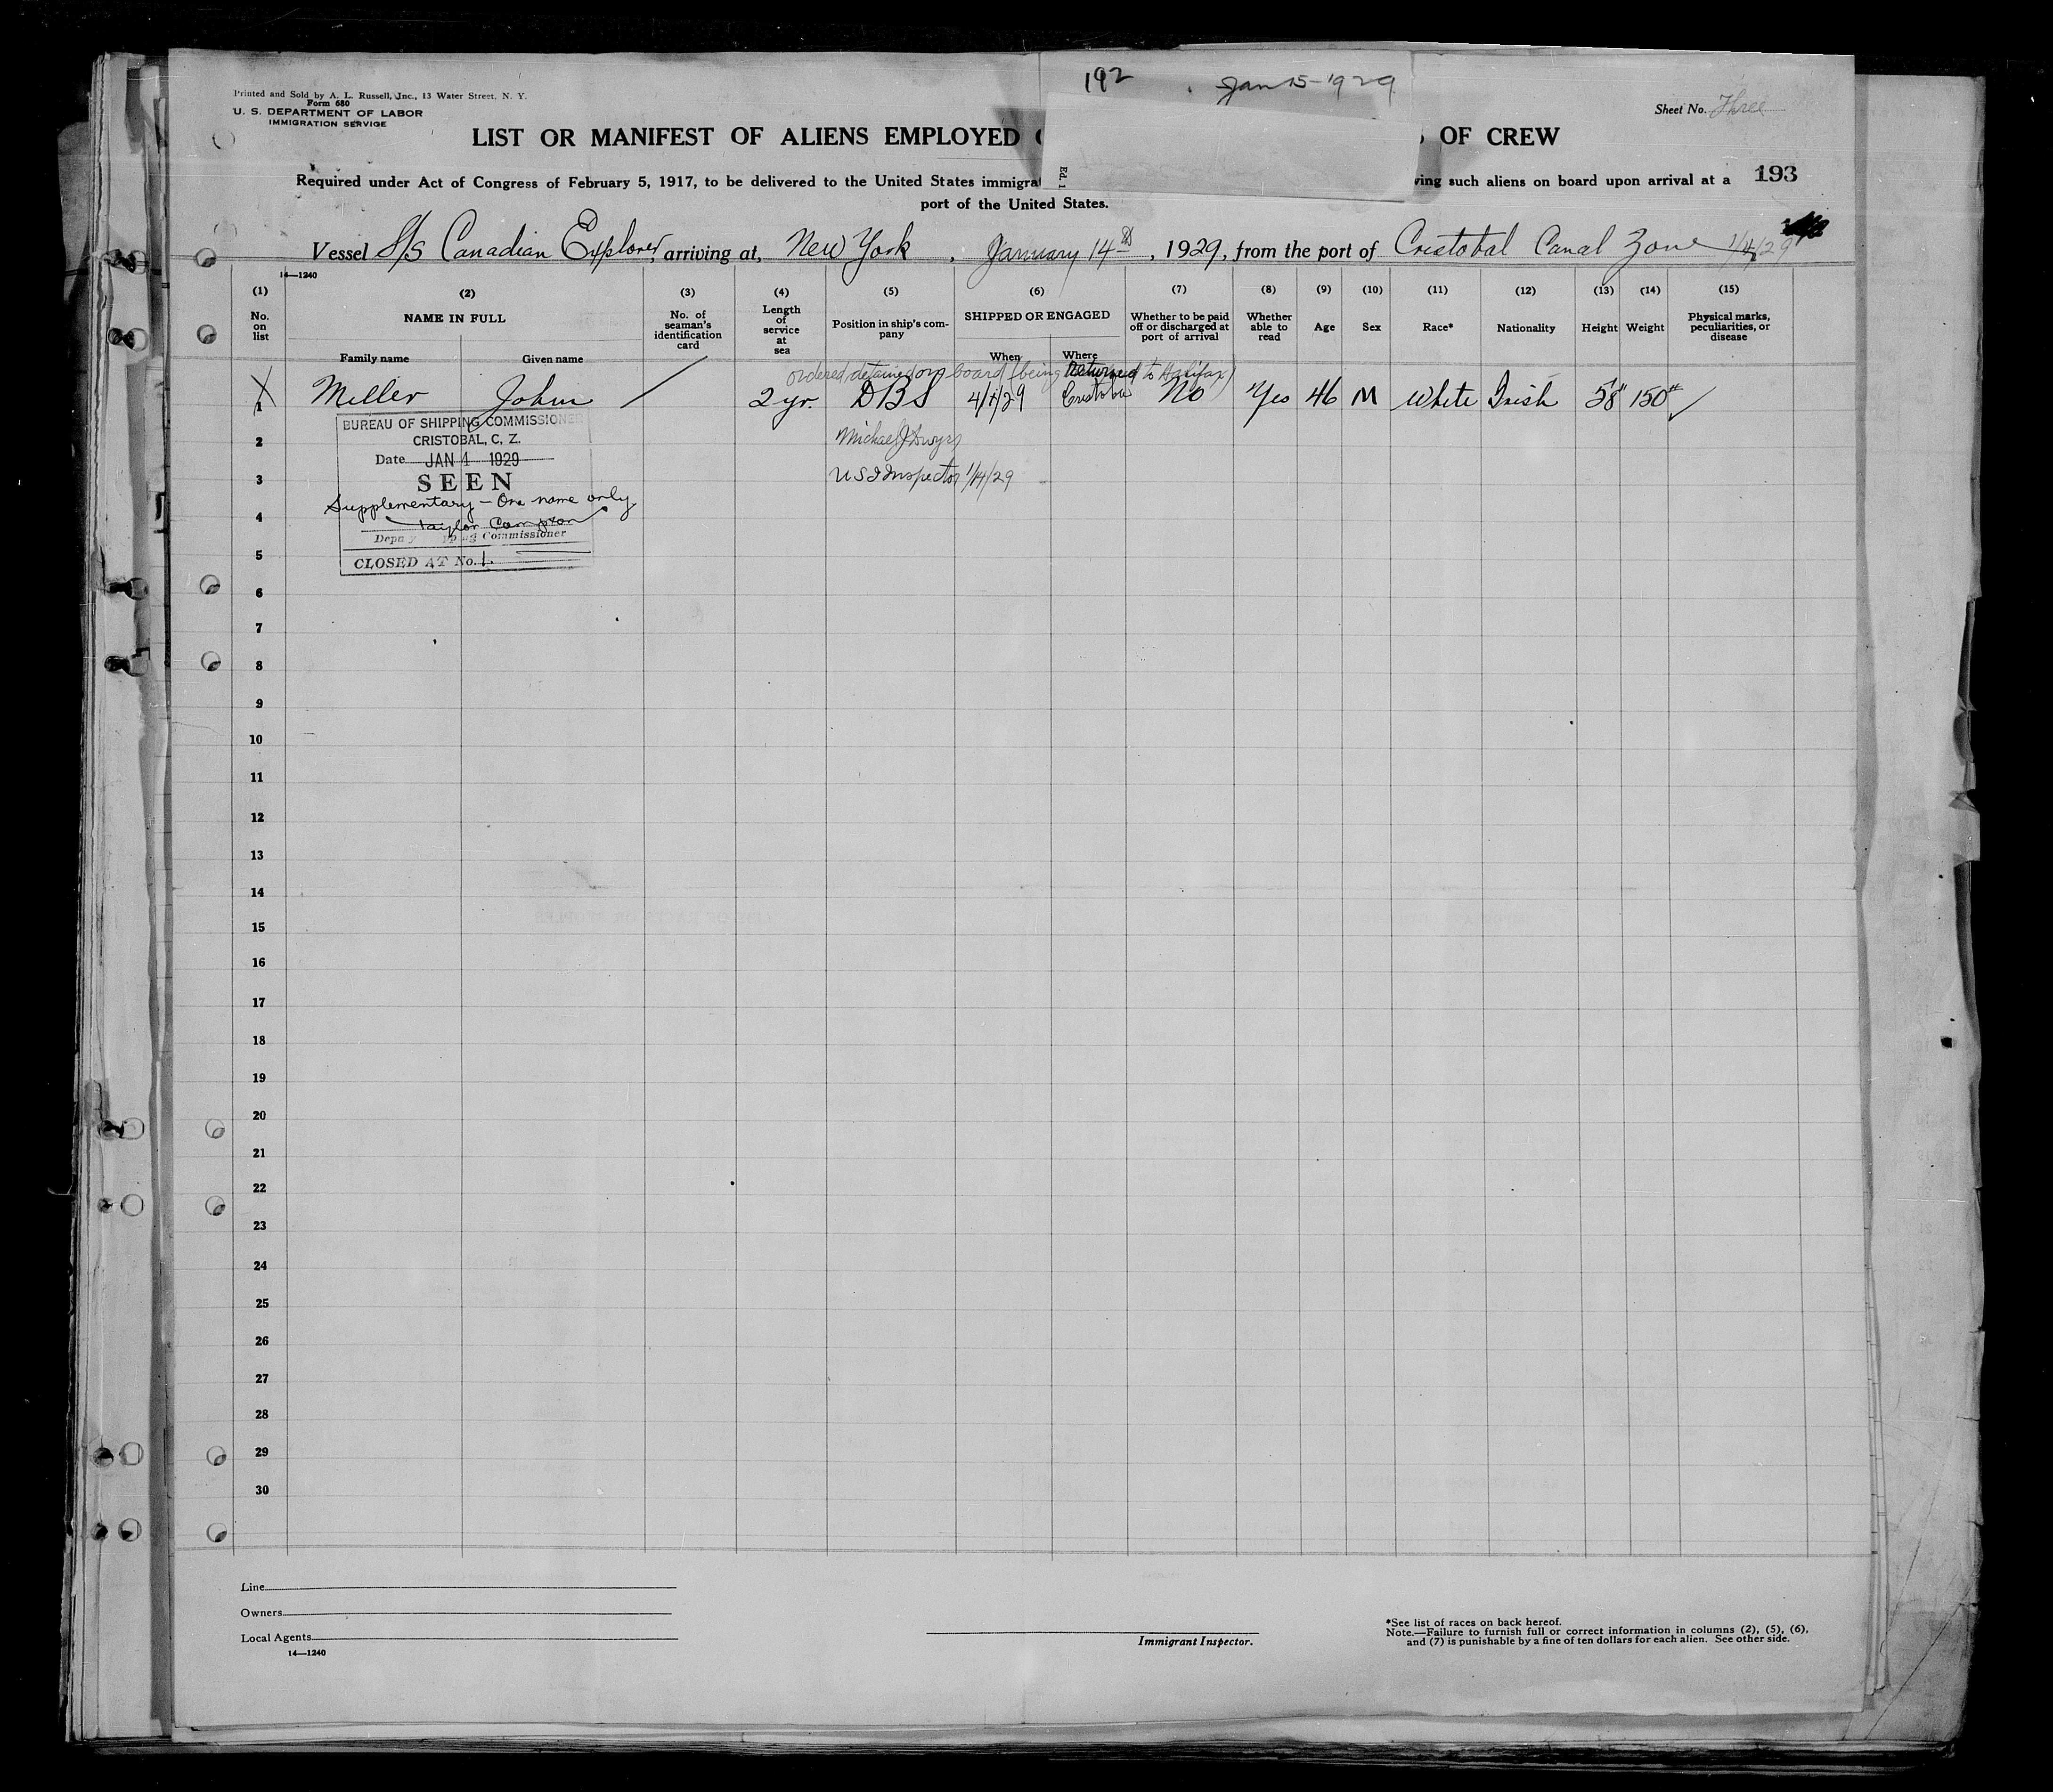 192 Jan 15-1929
Printed and Sold by A. L. Russell, Inc., 13 Water Street, N. Y.
Form 680
U. S. DEPARTMENT OF LABOR
IMMIGRATION SERVICE
Sheet No. Three
LIST OR MANIFEST OF ALIENS EMPLOYED OF CREW
Ed. 1
193
Required under Act of Congress of February 5, 1917, to be delivered to the United States immigra ving such aliens on board upon arrival at a
port of the United States.
Vessel S/S Canadian Explorer, arriving at, New York, January 14th, 1929, from the port of Cristobal Canal Zone 1/4/29
14—1240
(1) (2) (3) (4) (5) (6) (7) (8) (9) (10) (11) (12) (13) (14) (15)
No. on list
NAME IN FULL
Family name Given name
No. of seaman's identification card
Length of service at sea
Position in ship's com-pany
SHIPPED OR ENGAGED
When Where
Whether to be paid off or discharged at port of arrival
Whether able to read
Age
Sex
Race*
Nationality
Height
Weight
Physical marks, peculiarities, or disease
ordered detained on board (being Returned to Halifax)
1 Miller John 2 yr. DBS 4/1/29 Cristobal No Yes 46 M White Irish 5'8" 150#
BUREAU OF SHIPPING COMMISSIONER
CRISTOBAL, C. Z.
Date JAN 4 1929
SEEN
Supplementary - One name only
Taylor Compton
Deputy Shipping Commissioner
CLOSED AT No. 1
2 Michael J Dwyer
3 US I Inspector 1/14/29
4
5
6
7
8
9
10
11
12
13
14
15
16
17
18
19
20
21
22
23
24
25
26
27
28
29
30
Line
Owners
Local Agents
14—1240
Immigrant Inspector.
*See list of races on back hereof.
Note.—Failure to furnish full or correct information in columns (2), (5), (6),
and (7) is punishable by a fine of ten dollars for each alien. See other side.